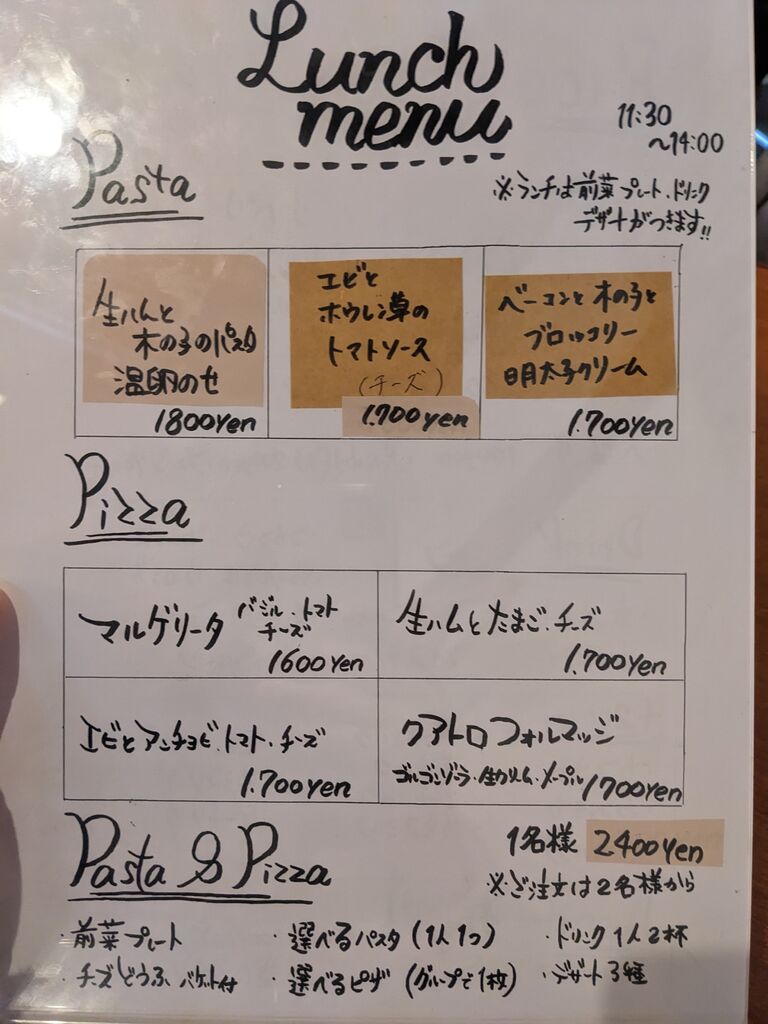 Lunch
menu
11:30
~14:00
※ランチは前菜プレート、ドリンク
デザートがつきます!!
Pasta
生ハムと
木の子のパスタ
温卵のせ
1800yen
エビと
ホウレン草の
トマトソース
(チーズ)
1.700yen
ベーコンと木の子と
ブロッコリー
明太子クリーム
1.700yen
Pizza
マルゲリータ バジル・トマト
チーズ
1600yen
生ハムとたまご、チーズ
1.700yen
エビとアンチョビ、トマト・チーズ
1.700yen
クアトロフォルマッジ
ゴルゴンゾーラ・生クリーム・メープル 1700yen
Pasta & Pizza
1名様 2400yen
※ご注文は2名様から
・前菜プレート
・選べるパスタ(1人1つ)
・ドリンク1人2杯
・チーズどうふ バケット付
・選べるピザ(グループで1枚)
・デザート3種